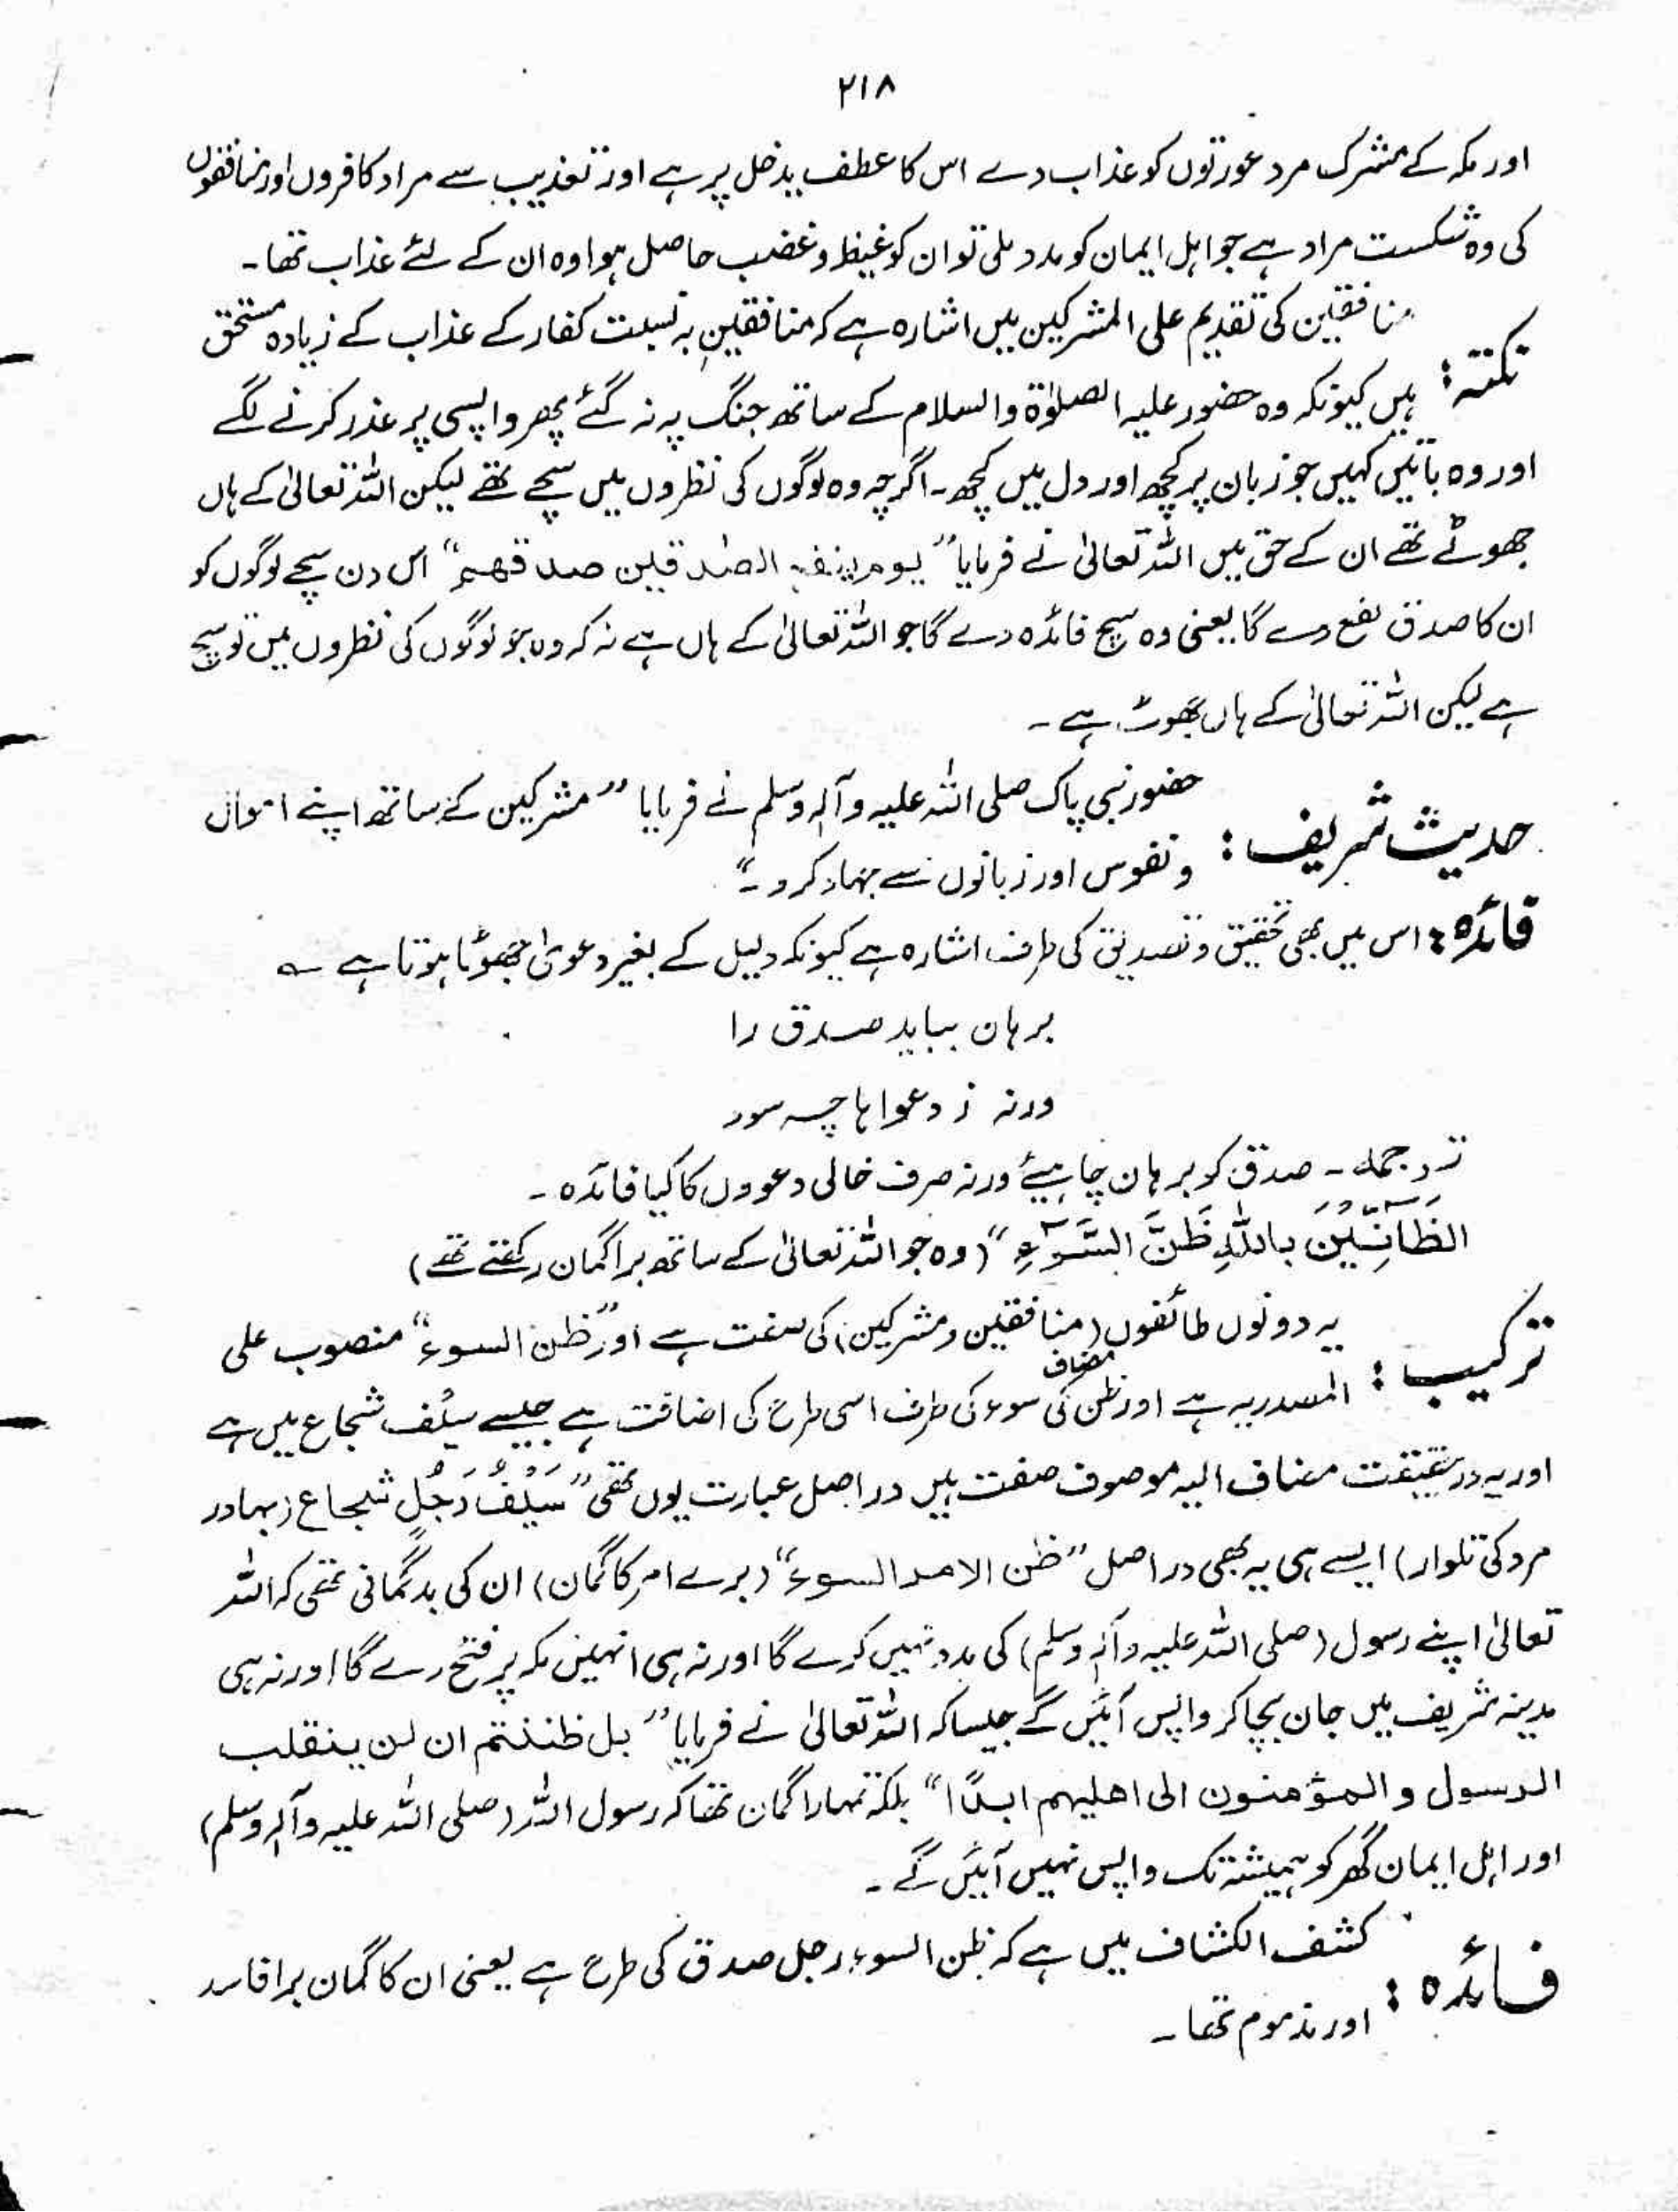 ۲۱۸
اور مکہ کے مشرک مرد عورتوں کو عذاب دے اس کا عطف یدخل پر ہے اور تعذیب سے مراد کافروں اور منافقوں
کی وہ شکست مراد ہے جو اہل ایمان کو مدد ملی تو ان کو غیظ و غضب حاصل ہوا وہ ان کے لئے عذاب تھا۔
نکتہ: منافقین کی تقدیم علی المشرکین میں اشارہ ہے کہ منافقین بہ نسبت کفار کے عذاب کے زیادہ مستحق
ہیں کیونکہ وہ حضور علیہ الصلوٰۃ والسلام کے ساتھ جنگ پہ نہ گئے پھر واپسی پر عذر کرنے لگے
اور وہ باتیں کہیں جو زبان پر کچھ اور دل میں کچھ۔ اگرچہ وہ لوگوں کی نظروں میں سچے تھے لیکن اللہ تعالیٰ کے ہاں
جھوٹے تھے ان کے حق میں اللہ تعالیٰ نے فرمایا ”یوم ینفع الصٰدقین صدقھم“ اس دن سچے لوگوں کو
ان کا صدق نفع دے گا یعنی وہ سچ فائدہ دے گا جو اللہ تعالیٰ کے ہاں ہے نہ کہ وہ جو لوگوں کی نظروں میں تو سچ
ہے لیکن اللہ تعالیٰ کے ہاں جھوٹ ہے۔
حدیث شریف: حضور نبی پاک صلی اللہ علیہ وآلہ وسلم نے فرمایا ”مشرکین کے ساتھ اپنے اموال
و نفوس اور زبانوں سے جہاد کرو۔“
فائدہ: اس میں بھی تحقیق و تصدیق کی طرف اشارہ ہے کیونکہ دلیل کے بغیر دعویٰ جھوٹا ہوتا ہے ؎
برہان بباید صدق را
ورنہ ز دعواہا چہ سود
ترجمہ۔ صدق کو برہان چاہیئے ورنہ صرف خالی دعووں کا کیا فائدہ۔
الظَّانِّیْنَ بِاللّٰهِ ظَنَّ السَّوْءِ“ (وہ جو اللہ تعالیٰ کے ساتھ برا گمان رکھتے تھے)
ترکیب: یہ دونوں طائفوں (منافقین و مشرکین) کی صفت ہے اور ”ظن السوء“ منصوب علی
المصدریہ ہے اور ظن کی مضاف سوء کی طرف اسی طرح کی اضافت ہے جیسے سیف شجاع میں ہے
اور یہ درحقیقت مضاف الیہ موصوف صفت ہیں دراصل عبارت یوں تھی ”سَیْفُ رَجُلٍ شجاع (بہادر
مرد کی تلوار) ایسے ہی یہ بھی دراصل ”ظن الامر السوء“ (برے امر کا گمان) ان کی بدگمانی تھی کہ اللہ
تعالیٰ اپنے رسول (صلی اللہ علیہ وآلہ وسلم) کی مدد نہیں کرے گا اور نہ ہی انہیں مکہ پر فتح دے گا اور نہ ہی
مدینہ شریف میں جان بچا کر واپس آئیں گے جیسا کہ اللہ تعالیٰ نے فرمایا ”بل ظننتم ان لن ینقلب
الرسول والمؤمنون الی اھلیہم ابدًا“ بلکہ تمہارا گمان تھا کہ رسول اللہ (صلی اللہ علیہ وآلہ وسلم)
اور اہل ایمان گھر کو ہمیشہ تک واپس نہیں آئیں گے۔
فائدہ: کشف الکشاف میں ہے کہ ظن السوء رجل صدق کی طرح ہے یعنی ان کا گمان برا فاسد
اور مذموم تھا۔